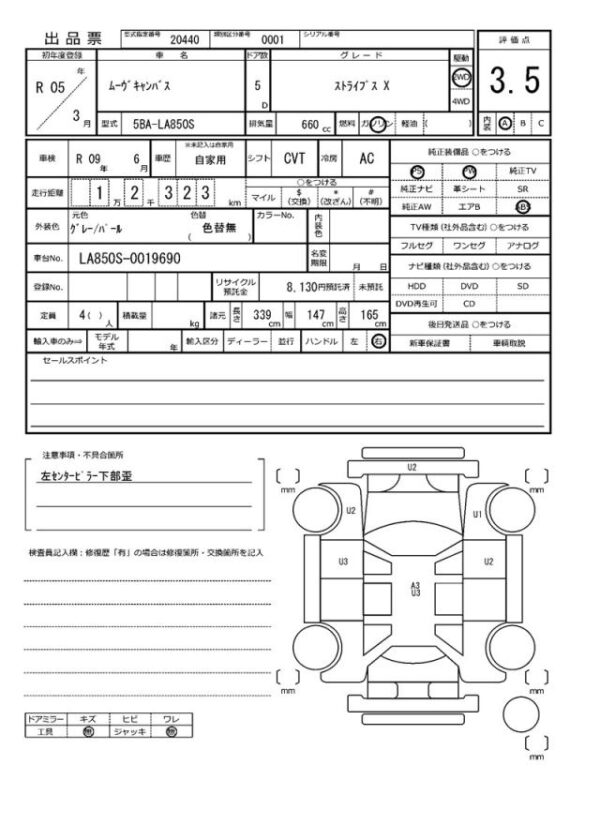 出品票 型式指定番号 20440 類別区分番号 0001 シリアル番号
評価点
3.5
内装 A B C
初年度登録 車名 ドア数 グレード 駆動
R 05 年 3 月 ムーヴキャンバス 5 D ストライプス X 2WD 4WD
型式 5BA-LA850S 排気量 660 cc 燃料 ガソリン 軽油 ( )
車検 R 09 年 6 月 車歴 ※未記入は自家用 自家用 シフト CVT 冷房 AC
走行距離 1 万 2 千 3 2 3 km ○をつける マイル $ (交換) * (改ざん) # (不明)
外装色 元色 グレー/パール 色替 色替無 ( ) カラーNo. 内装色
車台No. LA850S-0019690 名変期限 月 日
登録No. リサイクル預託金 8,130円預託済 未預託
定員 4( ) 人 積載量 kg 諸元 長さ 339 cm 幅 147 cm 高さ 165 cm
輸入車のみ⇒ モデル年式 年 輸入区分 ディーラー 並行 ハンドル 左 右
純正装備品 ○をつける
PS PW 純正TV
純正ナビ 革シート SR
純正AW エアB ABS
TV種類 (社外品含む) ○をつける
フルセグ ワンセグ アナログ
ナビ種類 (社外品含む) ○をつける
HDD DVD SD
DVD再生可 CD
後日発送品 ○をつける
新車保証書 車輌取説
セールスポイント
注意事項・不具合箇所
左センターピラー下部歪
検査員記入欄:修復歴「有」の場合は修復箇所・交換箇所を記入
U2
mm
mm
U2
U1
U3
A3
U3
U2
mm
mm
mm
ドアミラー キズ ヒビ ワレ
工具 無 ジャッキ 無